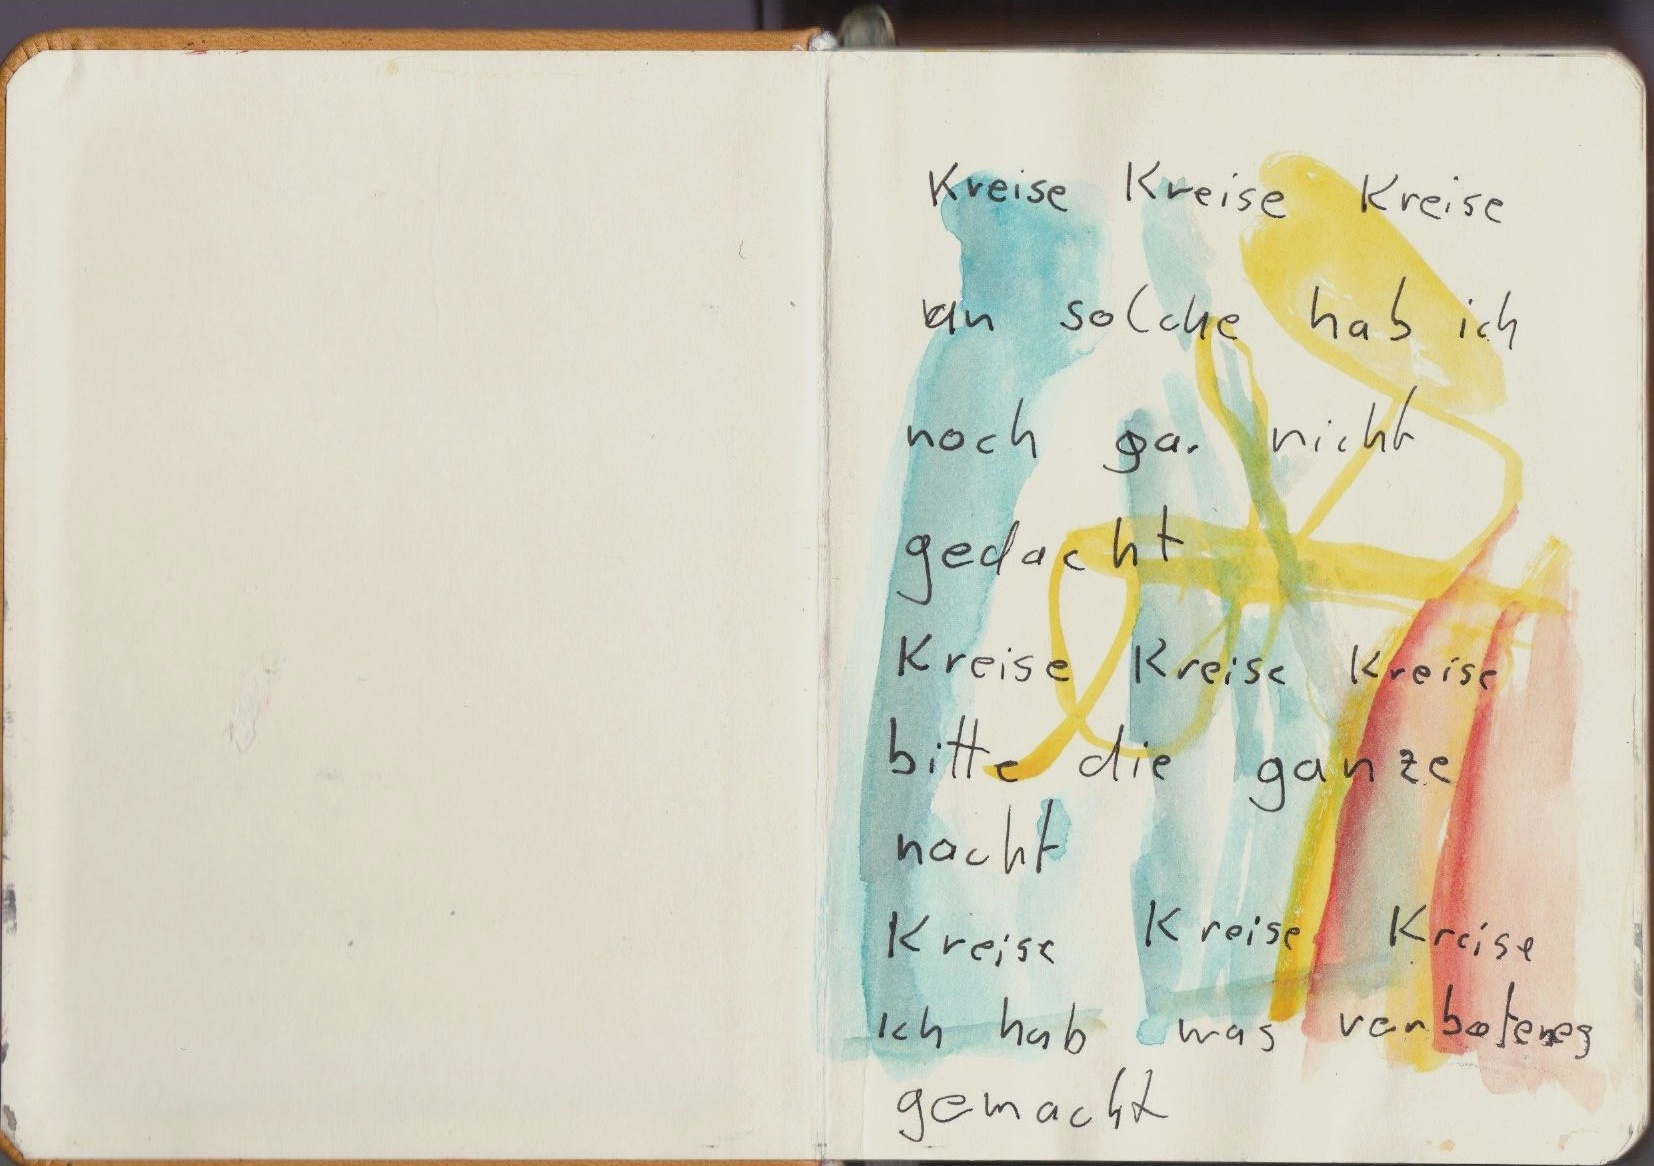 Kreise Kreise Kreise
an solche hab ich
noch gar nicht
gedacht
Kreise Kreise Kreise
bitte die ganze
nacht
Kreise Kreise Kreise
Ich hab was verbotenes
gemacht